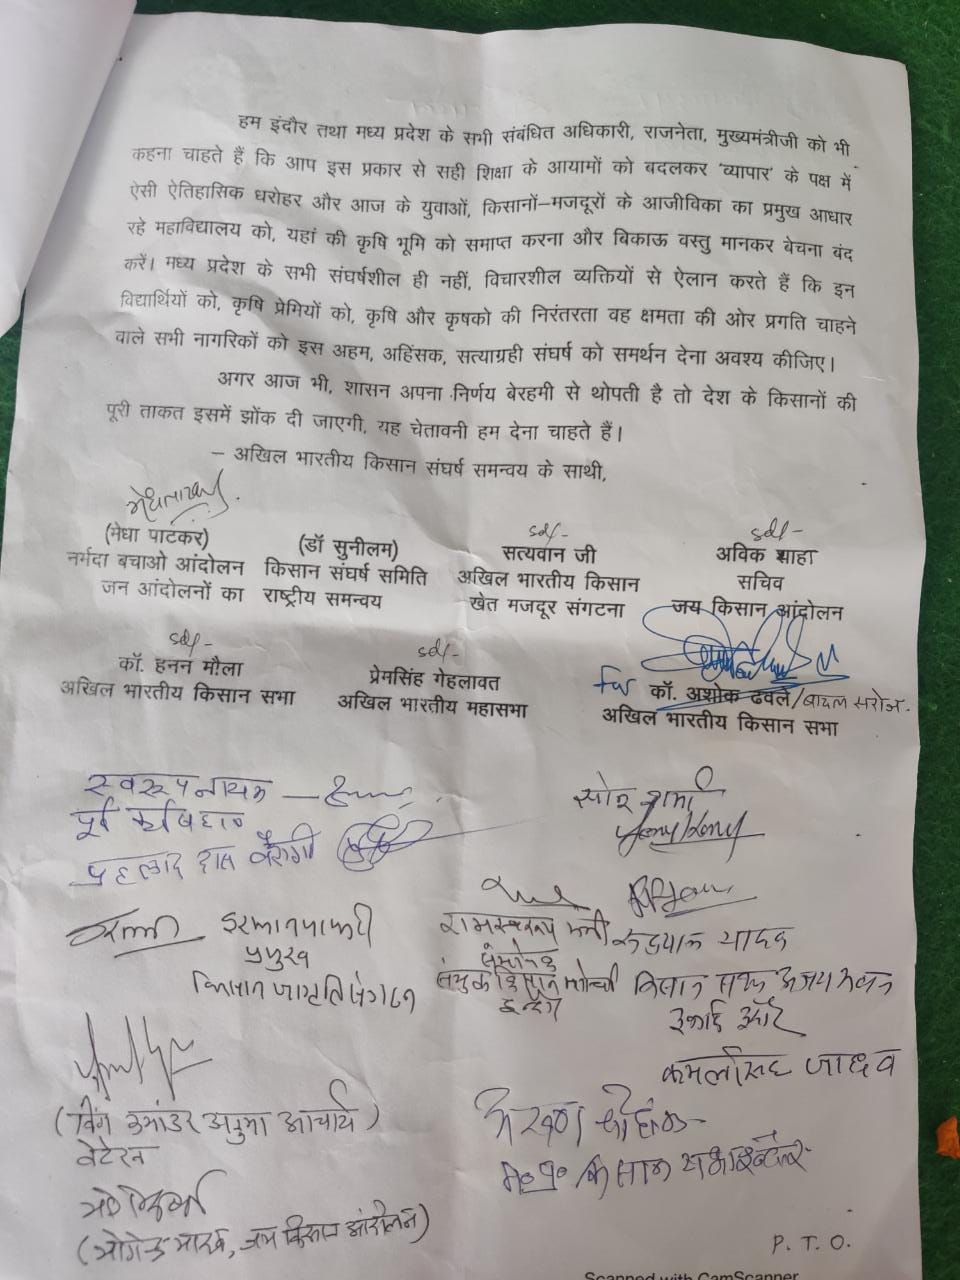 हम इंदौर तथा मध्य प्रदेश के सभी संबंधित अधिकारी, राजनेता, मुख्यमंत्रीजी को भी
कहना चाहते हैं कि आप इस प्रकार से सही शिक्षा के आयामों को बदलकर 'व्यापार' के पक्ष में
ऐसी ऐतिहासिक धरोहर और आज के युवाओं, किसानों-मजदूरों के आजीविका का प्रमुख आधार
रहे महाविद्यालय को, यहां की कृषि भूमि को समाप्त करना और बिकाऊ वस्तु मानकर बेचना बंद
करें। मध्य प्रदेश के सभी संघर्षशील ही नहीं, विचारशील व्यक्तियों से ऐलान करते हैं कि इन
विद्यार्थियों को, कृषि प्रेमियों को, कृषि और कृषको की निरंतरता वह क्षमता की ओर प्रगति चाहने
वाले सभी नागरिकों को इस अहम, अहिंसक, सत्याग्रही संघर्ष को समर्थन देना अवश्य कीजिए।
अगर आज भी, शासन अपना निर्णय बेरहमी से थोपती है तो देश के किसानों की
पूरी ताकत इसमें झोंक दी जाएगी, यह चेतावनी हम देना चाहते हैं।
– अखिल भारतीय किसान संघर्ष समन्वय के साथी,
sd/- sd/-
(मेधा पाटकर) (डॉ सुनीलम) सत्यवान जी अविक शाहा
नर्मदा बचाओ आंदोलन किसान संघर्ष समिति अखिल भारतीय किसान सचिव
जन आंदोलनों का राष्ट्रीय समन्वय खेत मजदूर संगटना जय किसान आंदोलन
sd/- sd/-
कॉ. हनन मौला प्रेमसिंह गेहलावत For कॉ. अशोक ढवले/बादल सरोज.
अखिल भारतीय किसान सभा अखिल भारतीय महासभा अखिल भारतीय किसान सभा
स्वरूप नायक
पूर्व
प्रहलाद दास वैरागी
रामस्वरूप मंत्री
यादव
प्रमुख
संयुक्त किसान मोर्चा
किसान
इन्दौर
जाधव
(विंग कमांडर अनुमा आचार्य)
वेटेरन
अरुण चौहान
म०प्र० किसान सभा इन्दौर
(योगेन्द्र यादव, जय किसान आंदोलन)
P. T. O.
Scanned with CamScanner